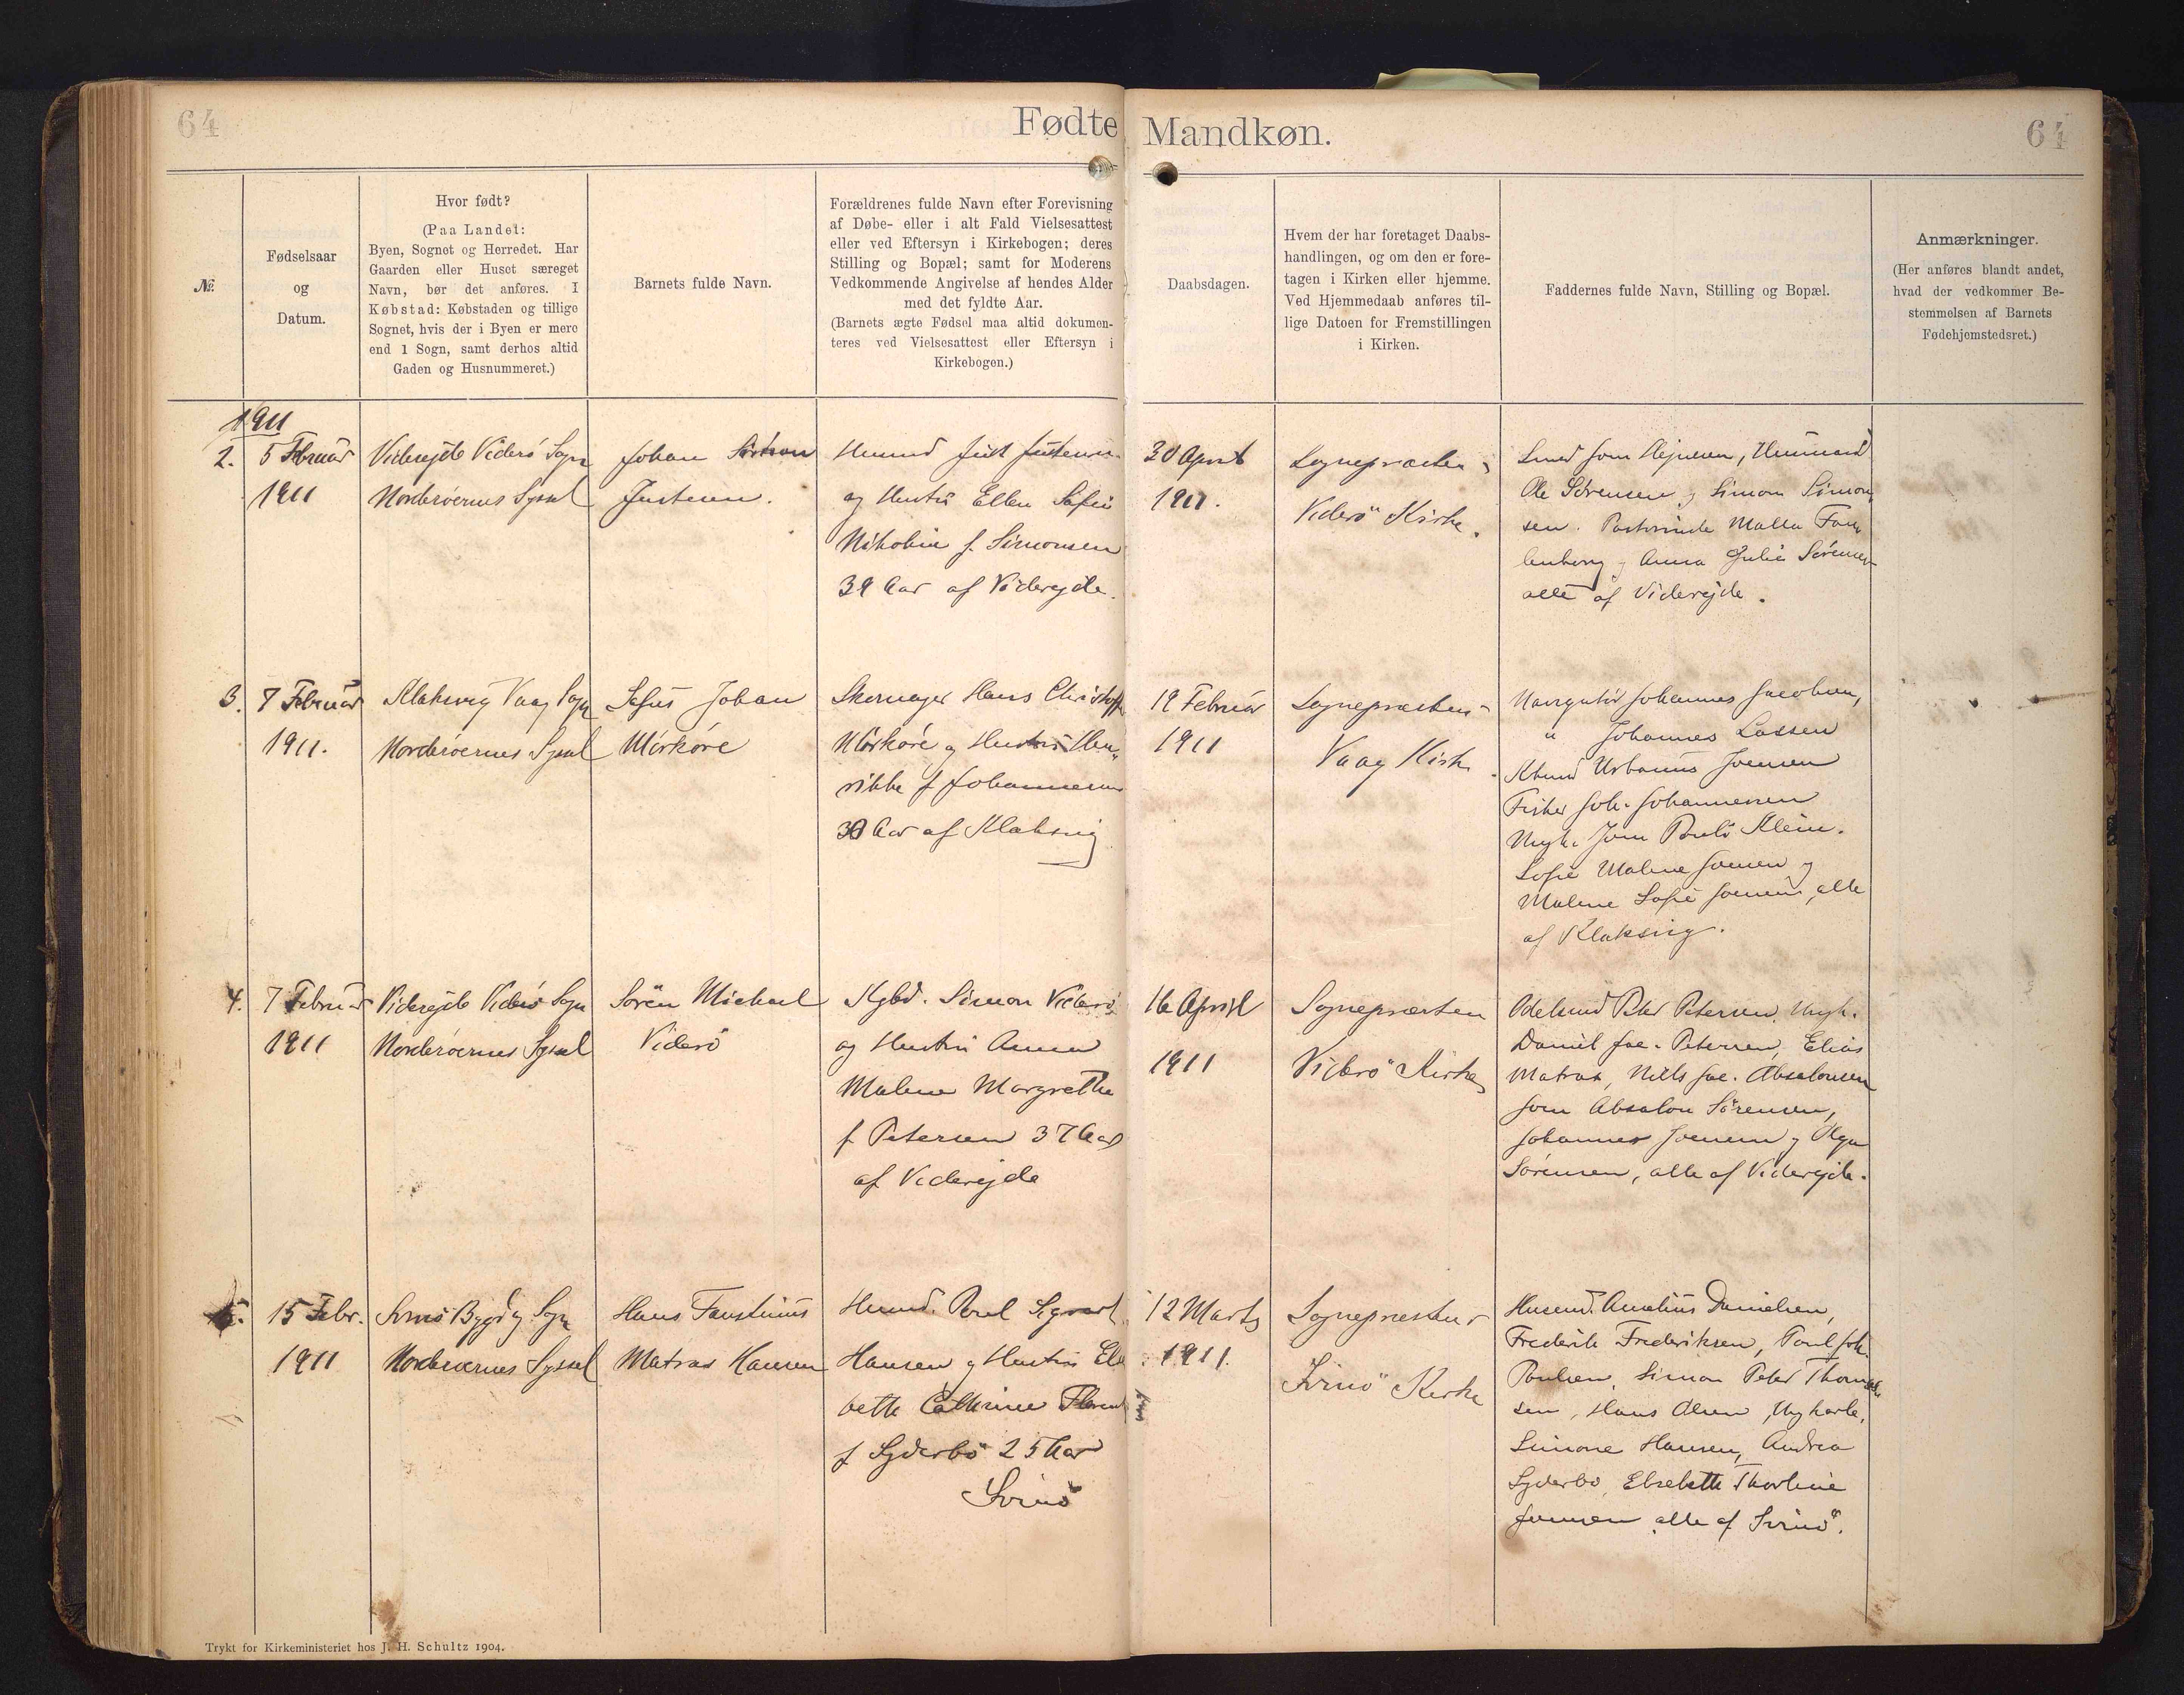 64
Fødte Mandkøn.
64
№.
Fødselsaar
og
Datum.
Hvor født?
(Paa Landet:
Byen, Sognet og Herredet. Har
Gaarden eller Huset særeget
Navn, bør det anføres. I
Købstad: Købstaden og tillige
Sognet, hvis der i Byen er mere
end 1 Sogn, samt derhos altid
Gaden og Husnummeret.)
Barnets fulde Navn.
Forældrenes fulde Navn efter Forevisning
af Døbe- eller i alt Fald Vielsesattest
eller ved Eftersyn i Kirkebogen; deres
Stilling og Bopæl; samt for Moderens
Vedkommende Angivelse af hendes Alder
med det fyldte Aar.
(Barnets ægte Fødsel maa altid dokumen-
teres ved Vielsesattest eller Eftersyn i
Kirkebogen.)
Daabsdagen.
Hvem der har foretaget Daabs-
handlingen, og om den er fore-
tagen i Kirken eller hjemme.
Ved Hjemmedaab anføres til-
lige Datoen for Fremstillingen
i Kirken.
Faddernes fulde Navn, Stilling og Bopæl.
Anmærkninger.
(Her anføres blandt andet,
hvad der vedkommer Be-
stemmelsen af Barnets
Fødehjemstedsret.)
1911
2.
5 Februar
1911
Viderejde Viderö Sogn
Norderöernes Syssel
Johan
Justesen.
Husmd Just Justesen
og Hustru Ellen Sofie
Nikoline f. Simonsen
39 Aar af Viderejde.
30 April
1911.
Sognepræsten
Viderö Kirke.
Ole Sörensen og Simon Simon
sen.
Anna Julie Sörensen
alle af Viderejde.
3.
7 Februar
1911.
Klaksvig Vaag Sogn
Norderöernes Syssel
Sofus Johan
Mörköre
Skomager Hans Christoffer
Mörköre og Hustru Hen
rikke f Johannesen
30 Aar af Klaksvig
19 Februar
1911
Sognepræsten
Vaag Kirke
Johannes Jacobsen,
" Johannes Lassen
Urbanus Joensen
Fisker Joh. Johannesen
Klein.
Sofie Malene Joensen og
Malene Sofie Joensen, alle
af Klaksvig.
4.
7 Februar
1911
Viderejde Viderö Sogn
Norderöernes Syssel
Sören Michael
Viderö
Kgbd. Simon Viderö
og Hustru Anna
Malene Margrethe
f. Petersen 37 Aar
af Viderejde
16 April
1911
Sognepræsten
Viderö Kirke
Odelsmd Peter Petersen, Ungk.
Daniel Jac. Petersen, Elias
Matras, Niels Jac. Absalonsen
Joen Absalon Sörensen,
Johannes Joensen og Olga
Sörensen, alle af Viderejde.
5.
15 Febr.
1911
Svinö Bygd og Sogn
Norderöernes Syssel
Hans Faustinus
Matras Hansen
Husmd. Poul Sigvart
Hansen og Hustru Else
bette Cathrine
f Syderbö 25 Aar
Svinö
12 Marts
1911.
Sognepræsten
Svinö Kirke
Husmd. Danielsen,
Frederik Frederiksen, Poul Joh.
Poulsen, Simon Peter Thomas
sen, Hans Olsen, Ungkarle,
Simone Hansen, Andrea
Syderbö, Elsebette Thorline
Joensen alle af Svinö.
Trykt for Kirkeministeriet hos J. H. Schultz 1904.